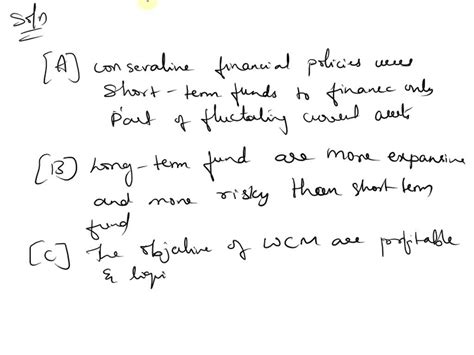 Soln
[A] conservative financial policies uses
Short-term funds to finance only
Part of fluctating current assets
[B] Long-term fund are more expansive
and more risky than short term
fund
[C] The objective of WCM are profitable
& liqui